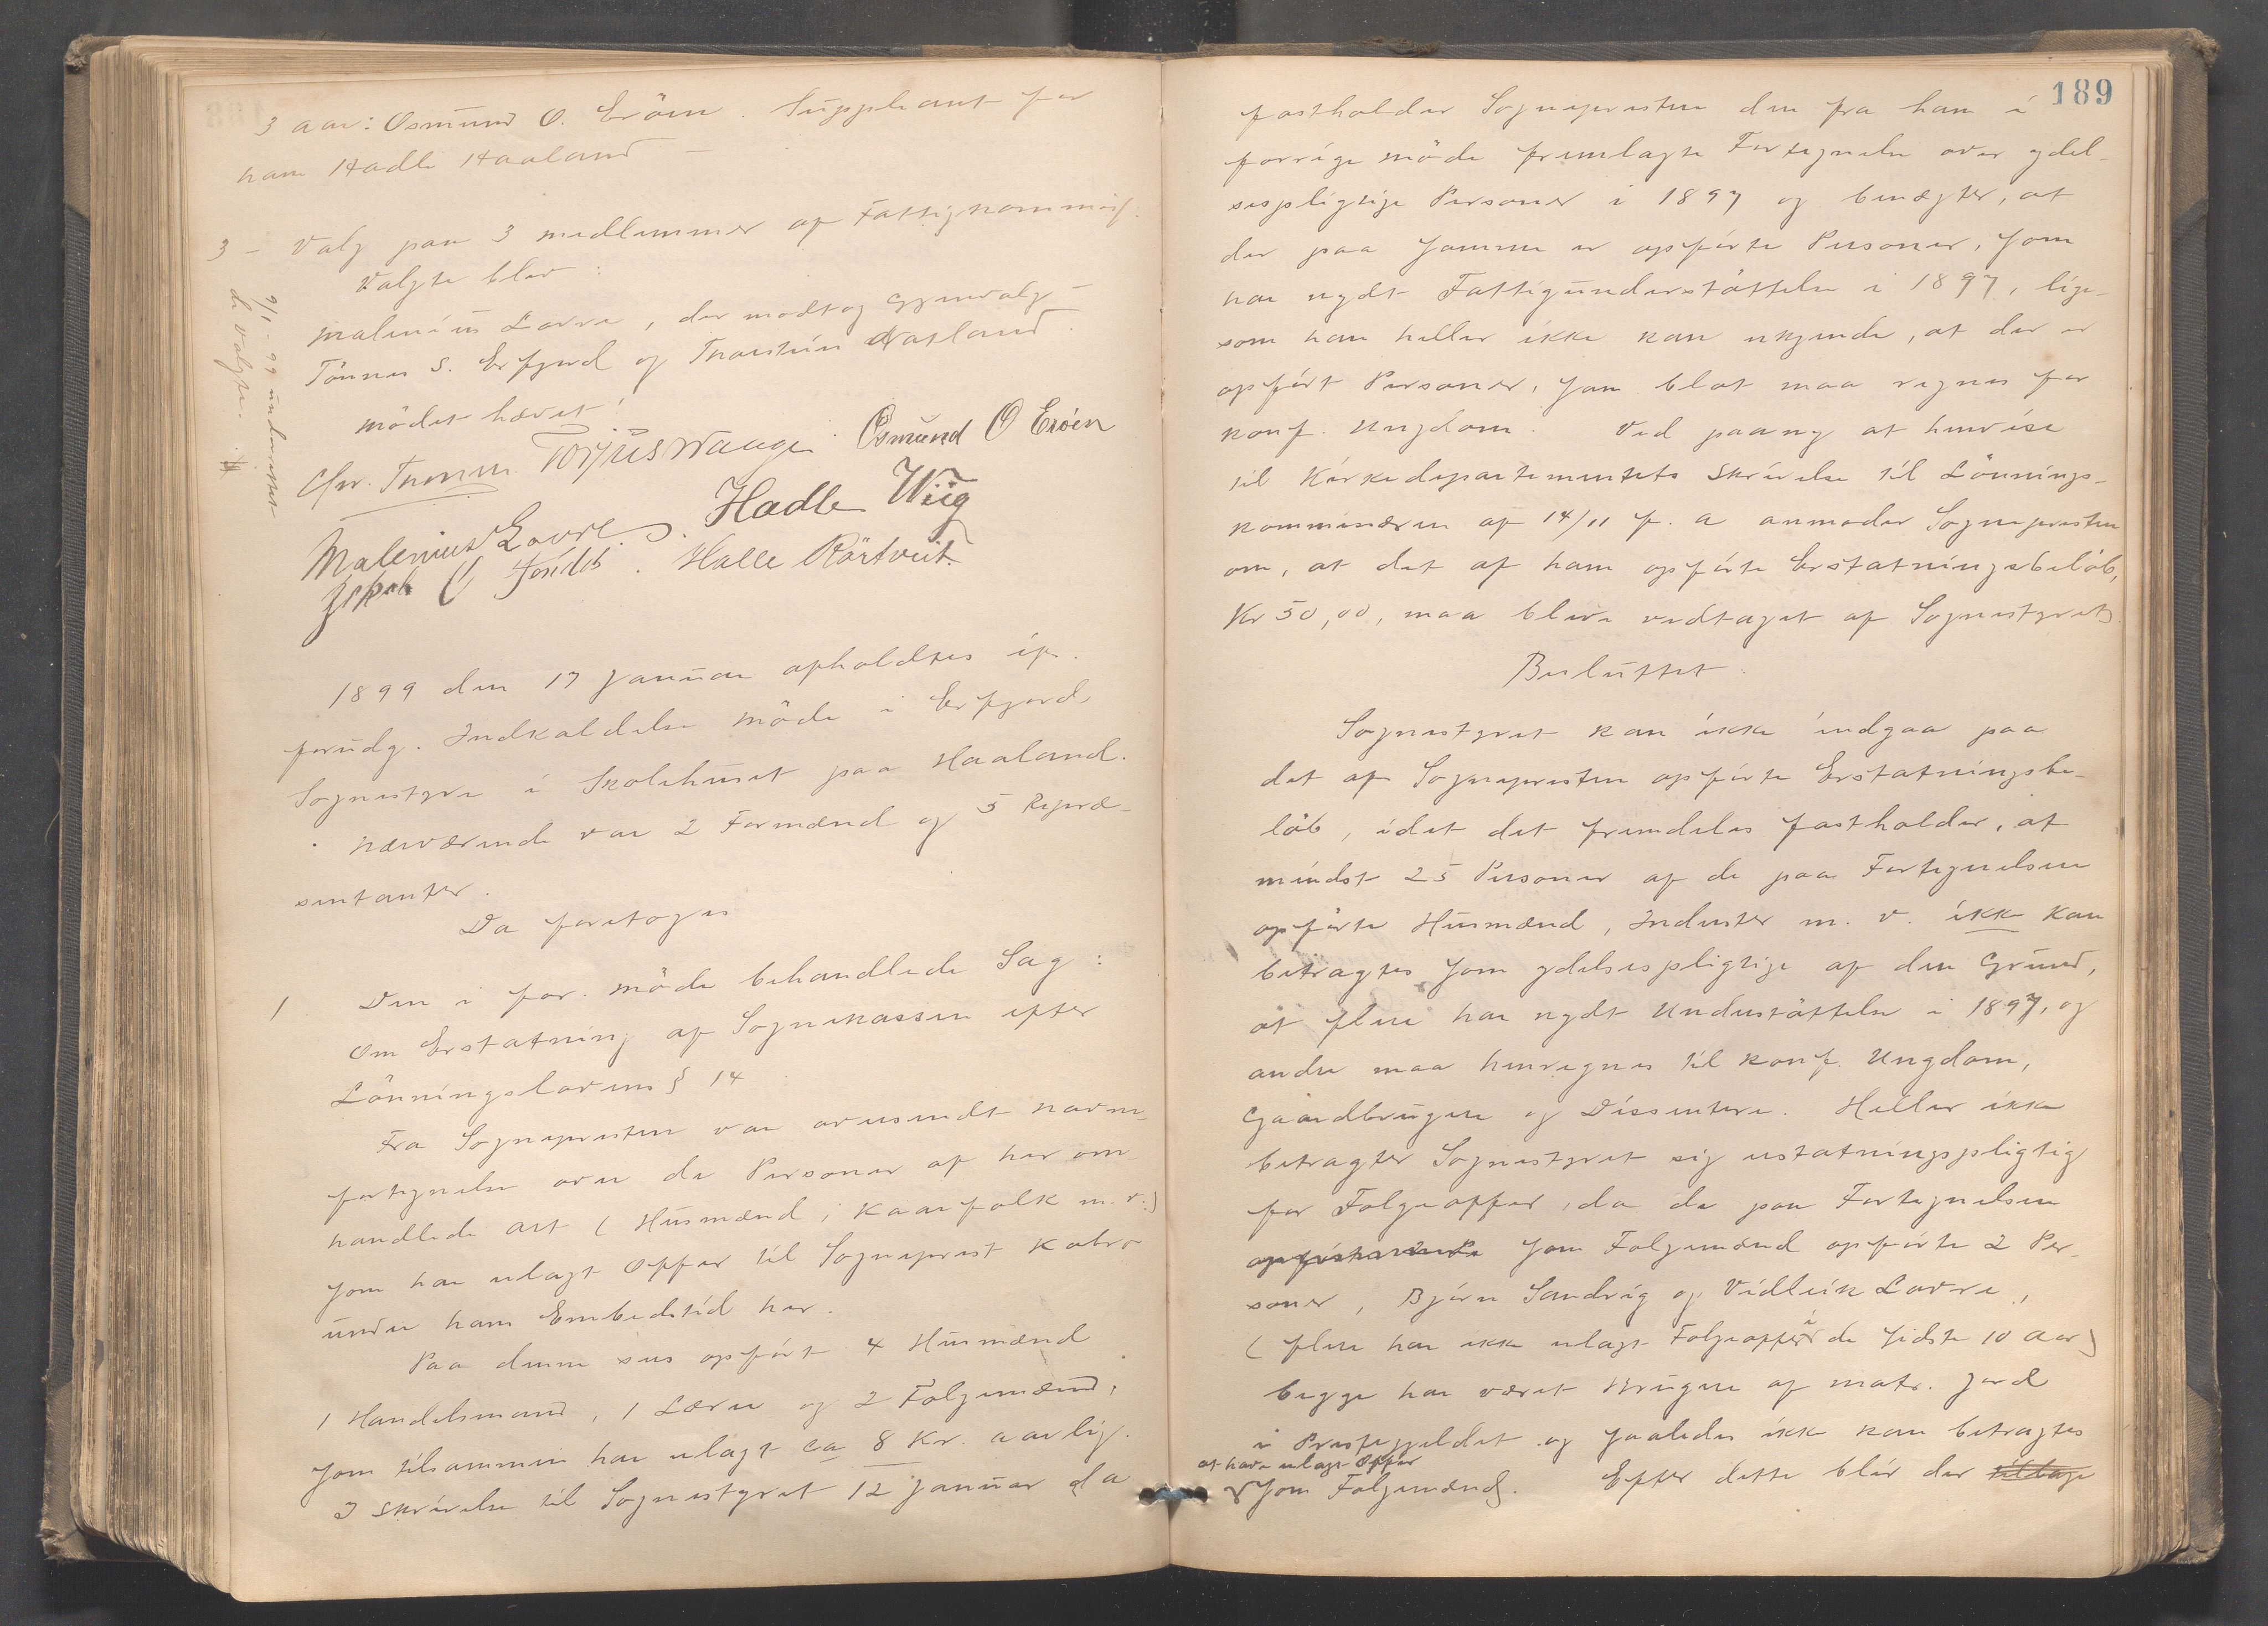 3 aar: Osmund O. Eröen. Suppleant for
ham Hadle Haaland –
3 – Valg paa 3 medlemmer af Fattigkommiss.
Valgte blev:
Malenius Lovra, der modtog Gjenvalg –
Tönnes S. Erfjord og Thorstein
mödet hævet!
9/1 – 99 underrettet
de valgte.
Chr. Thomsen Torjus Vaage. Osmund O Eröen
Malenius Lovre. Hadle Wiig
Jakob O Halle Rörtveit.
1899 den 17 Januar afholdtes if.
forudg. Indkaldelse möde i Erfjord
Sognestyre i Skolehuset paa Haaland.
Nærværende var 2 Formænd og 5 Repræ-
sentanter.
Da foretoges
1 Den i for. möde behandlede Sag:
Om Erstatning af Sognekassen efter
Lönningslovens § 14
Fra Sognepresten var oversendt navne-
fortegnelse over de Personer af her om-
handlede art (Husmænd, Kaarfolk m.v.)
som har erlagt Offer til Sogneprest Kobro
under hans Embedstid her.
Paa denne sees opfört 4 Husmænd
1 Handelsmand, 1 Lærer og 2 Folgemænd,
som tilsammen har erlagt ca 8 Kr. aarlig.
I skrivelse til Sognestyret 12 Januar d a
189
fastholder Sognepresten den fra ham i
forrige möde fremlagte Fortegnelse over ydel-
sespligtige Personer i 1897 og benægter, at
der paa samme er opförte Personer, som
har nydt Fattigunderstöttelse i 1897, lige-
som han heller ikke kan erkjende, at der er
opfört Personer, som blot maa regnes for
konf. Ungdom. Ved paany at henvise
til Kirkedepartementets Skrivelse til Lönnings-
kommissæren af 14/11 f. a anmoder Sognepresten
om, at det af ham opförte Erstatningsbelöb,
Kr 50,00, maa blive vedtaget af Sognestyret
Besluttet.
Sognestyret kan ikke indgaa paa
det af Sognepresten opförte Erstatningsbe-
löb, idet det fremdeles fastholder, at
mindst 25 Personer af de paa Fortegnelsen
opförte Husmænd, Inderster m. v. ikke kan
betragtes som ydelsespligtige af den Grund,
at flere har nydt Understöttelse i 1897, og
andre maa henregnes til konf. Ungdom,
Gaardbrugere og Dissentere. Heller ikke
betragter Sognestyret sig erstatningspligtig
for Folgeoffer, da de paa Fortegnelsen
som Folgemænd opförte 2 Per-
soner, Björn Sandvig og Vidleik Lovra,
(flere har ikke erlagt Folgeoffer i de sidste 10 aar)
begge har været Brugere af matr. Jord
i Prestegjeldet og saaledes ikke kan betragtes
at have erlagt Offer
som Folgemænd. Efter dette blir der tilbage